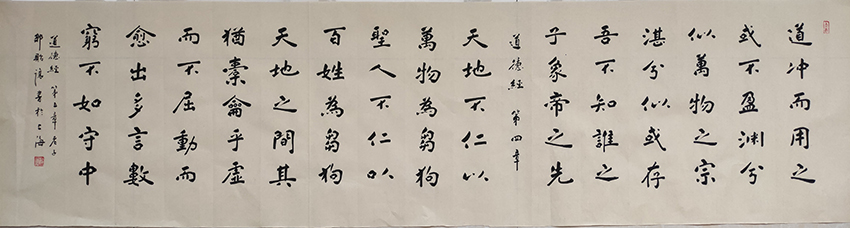 道冲而用之
或不盈渊兮
似萬物之宗
湛兮似或存
吾不知誰之
子象帝之先
道德經 第四章
天地不仁以
萬物為芻狗
聖人不仁以
百姓為芻狗
天地之間其
猶橐龠乎虛
而不屈動而
愈出多言數
窮不如守中
道德經 第五章 老子
於上海